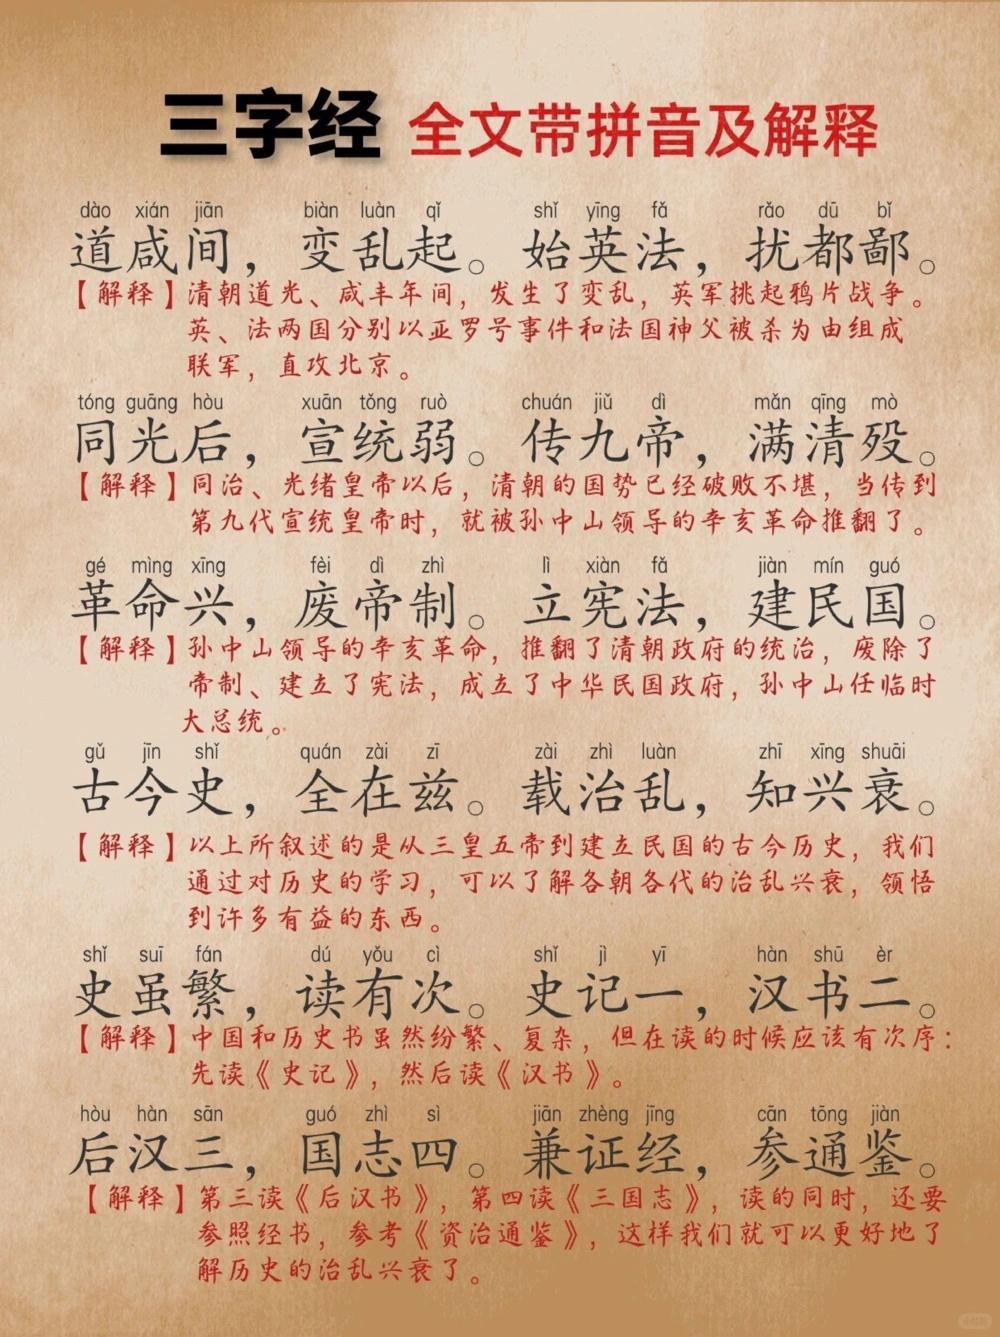 三字经 全文带拼音及解释
dào xián jiān biàn luàn qǐ shǐ yīng fǎ rǎo dū bǐ
道咸间，变乱起。始英法，扰都鄙。
【解释】清朝道光、咸丰年间，发生了变乱，英军挑起鸦片战争。
英、法两国分别以亚罗号事件和法国神父被杀为由组成
联军，直攻北京。
tóng guāng hòu xuān tǒng ruò chuán jiǔ dì mǎn qīng mò
同光后，宣统弱。传九帝，满清殁。
【解释】同治、光绪皇帝以后，清朝的国势已经破败不堪，当传到
第九代宣统皇帝时，就被孙中山领导的辛亥革命推翻了。
gé mìng xīng fèi dì zhì lì xiàn fǎ jiàn mín guó
革命兴，废帝制。立宪法，建民国。
【解释】孙中山领导的辛亥革命，推翻了清朝政府的统治，废除了
帝制、建立了宪法，成立了中华民国政府，孙中山任临时
大总统。
gǔ jīn shǐ quán zài zī zài zhì luàn zhī xīng shuāi
古今史，全在兹。载治乱，知兴衰。
【解释】以上所叙述的是从三皇五帝到建立民国的古今历史，我们
通过对历史的学习，可以了解各朝各代的治乱兴衰，领悟
到许多有益的东西。
shǐ suī fán dú yǒu cì shǐ jì yī hàn shū èr
史虽繁，读有次。史记一，汉书二。
【解释】中国和历史书虽然纷繁、复杂，但在读的时候应该有次序：
先读《史记》，然后读《汉书》。
hòu hàn sān guó zhì sì jiān zhèng jīng cān tōng jiàn
后汉三，国志四。兼证经，参通鉴。
【解释】第三读《后汉书》，第四读《三国志》，读的同时，还要
参照经书，参考《资治通鉴》，这样我们就可以更好地了
解历史的治乱兴衰了。